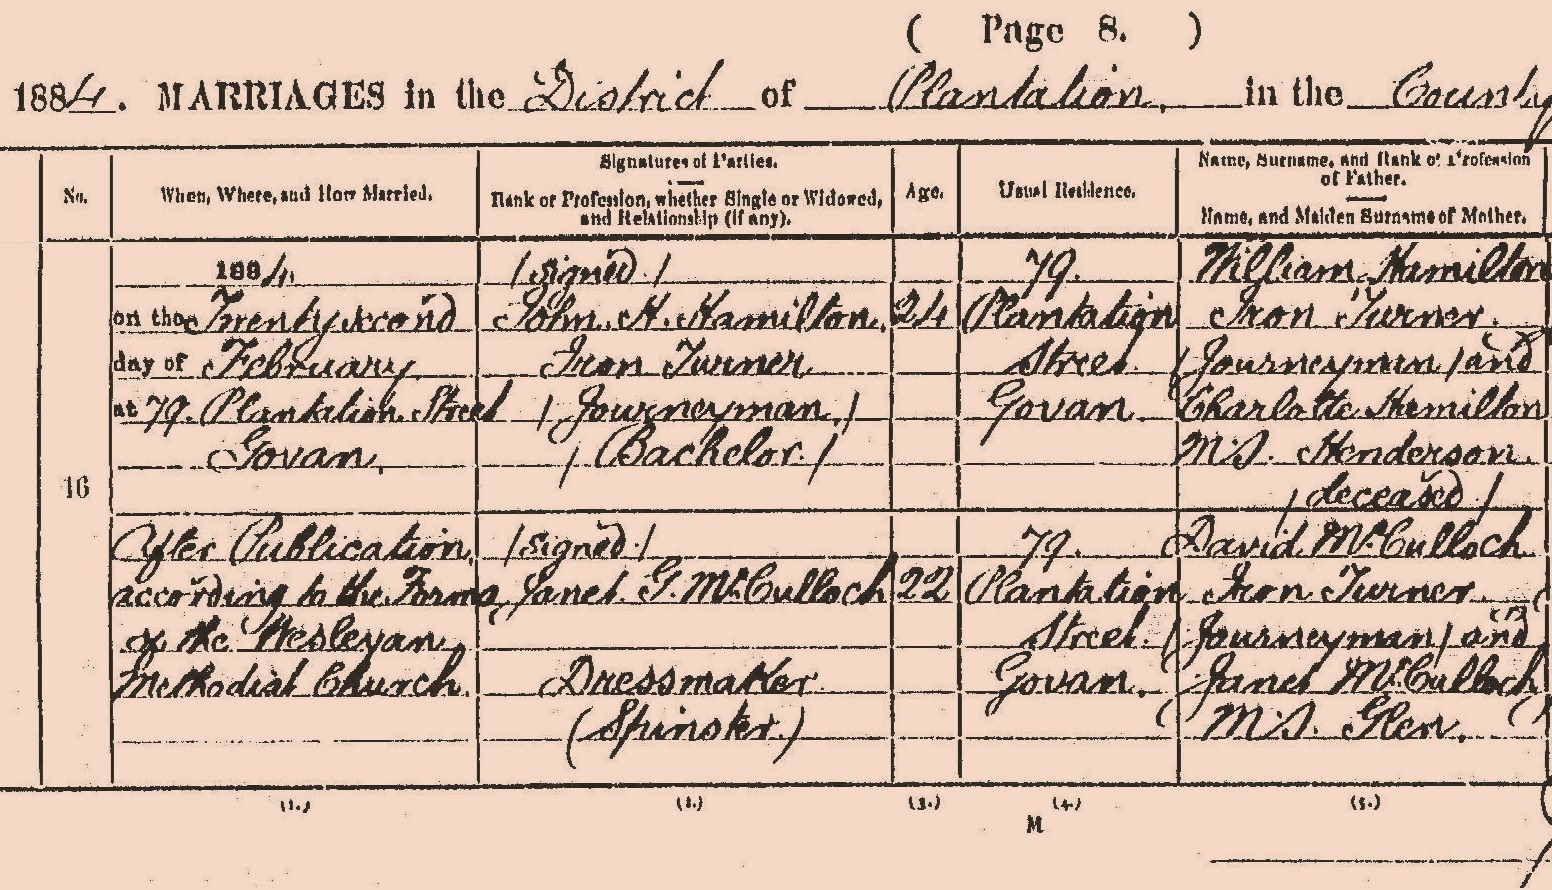 ( Page 8. )
1884. MARRIAGES in the District of Plantation. in the County
No.
When, Where, and How Married.
Signatures of Parties.
Rank or Profession, whether Single or Widowed,
and Relationship (if any).
Age.
Usual Residence.
Name, Surname, and Rank or Profession
of Father.
Name, and Maiden Surname of Mother.
16
1884.
on the Twenty second
day of February
at 79. Plantation Street
Govan.
After Publication,
according to the Forms
of the Wesleyan
Methodist Church.
(signed.)
John. H. Hamilton.
Iron Turner
(Journeyman.)
(Bachelor.)
(signed.)
Janet. G. McCulloch
Dressmaker
(Spinster.)
24
22
79.
Plantation
Street.
Govan.
79.
Plantation
Street.
Govan.
William Hamilton
Iron Turner.
(Journeyman) and
Charlotte Hamilton
M.S. Henderson.
(deceased)
David McCulloch
Iron Turner
(Journeyman) and
Janet McCulloch
M.S. Glen.
(1.)
(2.)
(3.)
(4.)
(5.)
M